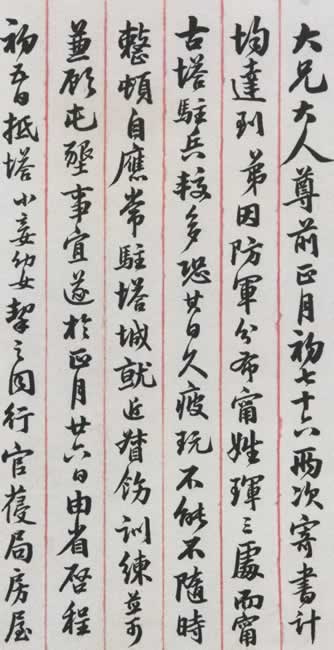 大兄大人尊前正月初七十六兩次寄書計
均達到弟因防軍分布甯姓琿三處而甯
古塔駐兵較多恐廿日久疲玩不能不隨時
整頓自應常駐塔城就近督飭訓練並可
兼顧屯墾事宜遂於正月廿六日由省啓程
初五日抵塔小妾幼女挈之同行官薩局房屋